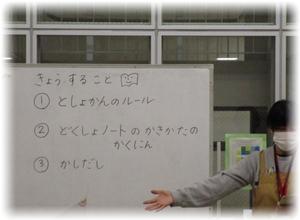 きょう、すること
① としょかんのルール
② どくしょノートのかきかたの
かくにん
③ かしだし